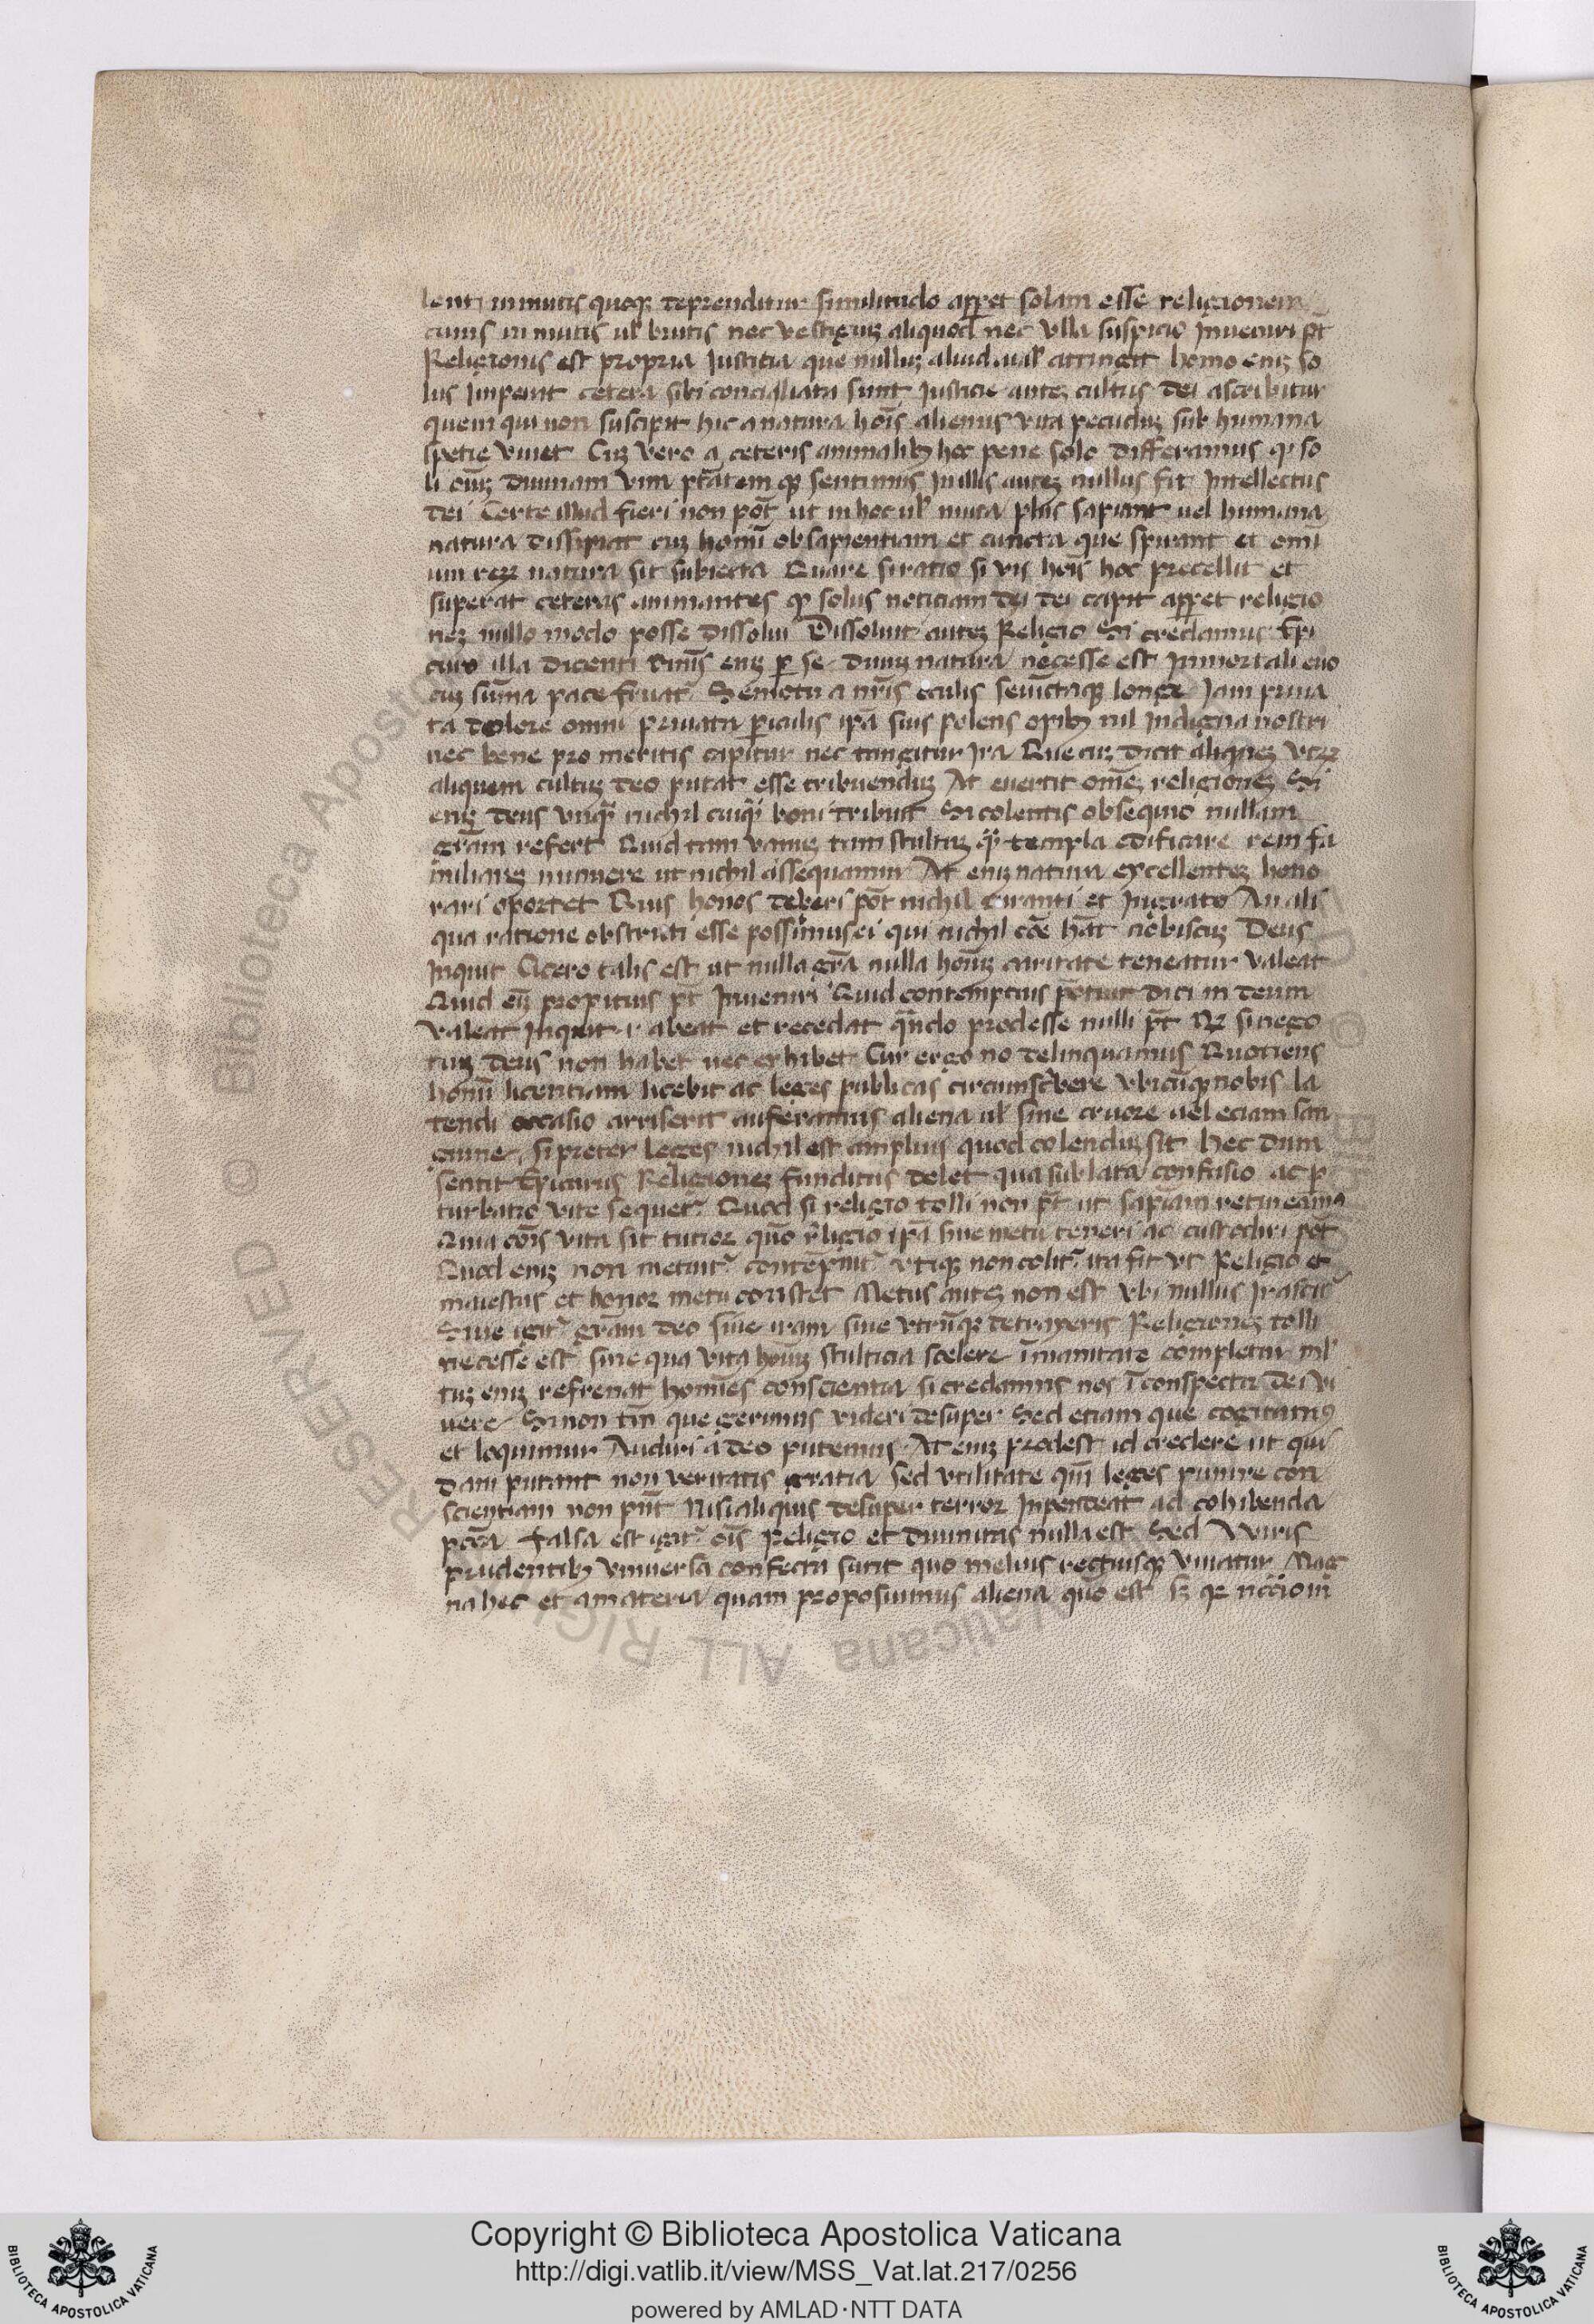 lenti in mutis quoqꝫ deprenditur similitudo apꝑet solam esse religionem
cuius in mutis ul̄ brutis nec vestigiuꝫ aliquod nec vlla suspicio Inueniri pt̄
Religionis est propria Justitia que nulluꝫ aliud aīal attingit homo eniꝫ so
lus Imperit cetera sibi concigliata sunt Justicie auteꝫ cultus dei ascribitur
quem qui non suscipit hic a natura hoīs alienus vita pecuduꝫ sub humana
spetie viuet Cuꝫ vero a ceteris animalibꝫ hoc pene solo differamus ꝙ so
li oīuꝫ diuinam vim ptātem qꝫ sentimus In illis auteꝫ nullus fit Intellectus
dei Certe illud fieri non pōt ut in hoc ul̄ muta plus sapiant uel humana
natura dissipiat cuꝫ homī ob sapientiam et cuncta que spirant et omī
um reꝝ natura sit subiecta Quare si ratio si vis hoīs hoc precellit et
superat ceteras animantes ꝙ solus noticiam dei dei capit apꝑet religio
neꝫ nullo modo posse dissolui Dissoluit auteꝫ Religio Si credamus Epi
curo illa dicenti Om̄īs eniꝫ ꝑ se diuuꝫ natura necesse est Inmortali euo
cuꝫ sum̄a pace fruat᷑ Semota a nr̄is oculis seiūctaqꝫ longe Jam priua
ta dolore omni priuata ꝑiculis ip̄a suis polens opibꝫ nil Indigna nostri
nec bene pro meritis capitur nec tangitur Ira Que cuꝫ dicit aliqueꝫ vtꝝ
aliquem cultuꝫ deo putat esse tribuenduꝫ At euertit om̄eꝫ religioneꝫ Si
eniꝫ deus vnqꝫ nichil cuiqꝫ boni tribuit Si colentis obsequio nullam
gr̄am refert Quid tam vanuꝫ tam stultuꝫ qꝫ templa edificare rem fa
miliareꝫ minuere ut nichil assequamur At eniꝫ natura excellenteꝫ hono
rari oportet Quis honos deberi pōt nichil curanti et Ingrato An alis
qua ratione obstricti esse possimus ei qui nichil cōe hāt nobiscuꝫ Deus
Inquit Cicero talis est ut nulla gr̄a nulla hoīuꝫ caritate teneatur valeat
Quid eīꝫ propitius pt̄ Inueniri Quid contemptius potuit dici in deum
valeat Inquit .i. abeat et recedat qn̄do prodesse nulli pt̄ Qꝫ si nego
tiuꝫ deus non habet nec exhibet Cur ergo no delinquamus Quotiens
homī licentiam licebit ac leges publicas circumscribere vbicūqꝫ nobis la
tendi occasio arriserit auferamus aliena ul̄ sine cruore uel eciam san
guine si preter leges nichil est amplius quod colenduꝫ sit hec dum
sentit Epicurus Religioneꝫ funditus delet qua sublata confusio ac ꝑ
turbatio vite sequet᷑ Quod si religio tolli non pt̄ ut sapiam retineamꝰ
Qua cōis vita sit tutior quo religio ip̄a sine metu teneri ac custodiri pōt
Quod eniꝫ non metuit᷑ contēpnit᷑ vtiqꝫ non colit᷑ ita fit vt Religio et
maiestas et honor metu constet Metus auteꝫ non est vbi nullus Irascit᷑
Siue igit᷑ gr̄am deo siue iram siue vtrūqꝫ detraxeris Religioneꝫ tolli
necesse est sine qua vita hoīuꝫ stulticia scelere īmanitate completur ml̄
tuꝫ eniꝫ refrenat homines conscientia si credamus nos ī conspectu dei vi
uere Si non tm̄ que gerimus videri desuper Sed etiam que cogitamꝰ
et loquimur Audiri a deo putemus At eniꝫ prodest id credere ut qui
dam putant non veritatis gratia sed vtilitate qm̄ leges punire con
scientiam non pn̄t Nisi aliquis desuper terror Inpendeat ad cohibenda
pcc̄a Falsa est igit᷑ oīs Religio et diuinitas nulla est Sed Viris
prudentibꝫ vniuersa conficta sunt quo melius rectiusqꝫ viuatur Mag
na hec et a materia quam proposuimus aliena quo est sꝫ
Copyright © Biblioteca Apostolica Vaticana
http://digi.vatlib.it/view/MSS_Vat.lat.217/0256
powered by AMLAD·NTT DATA